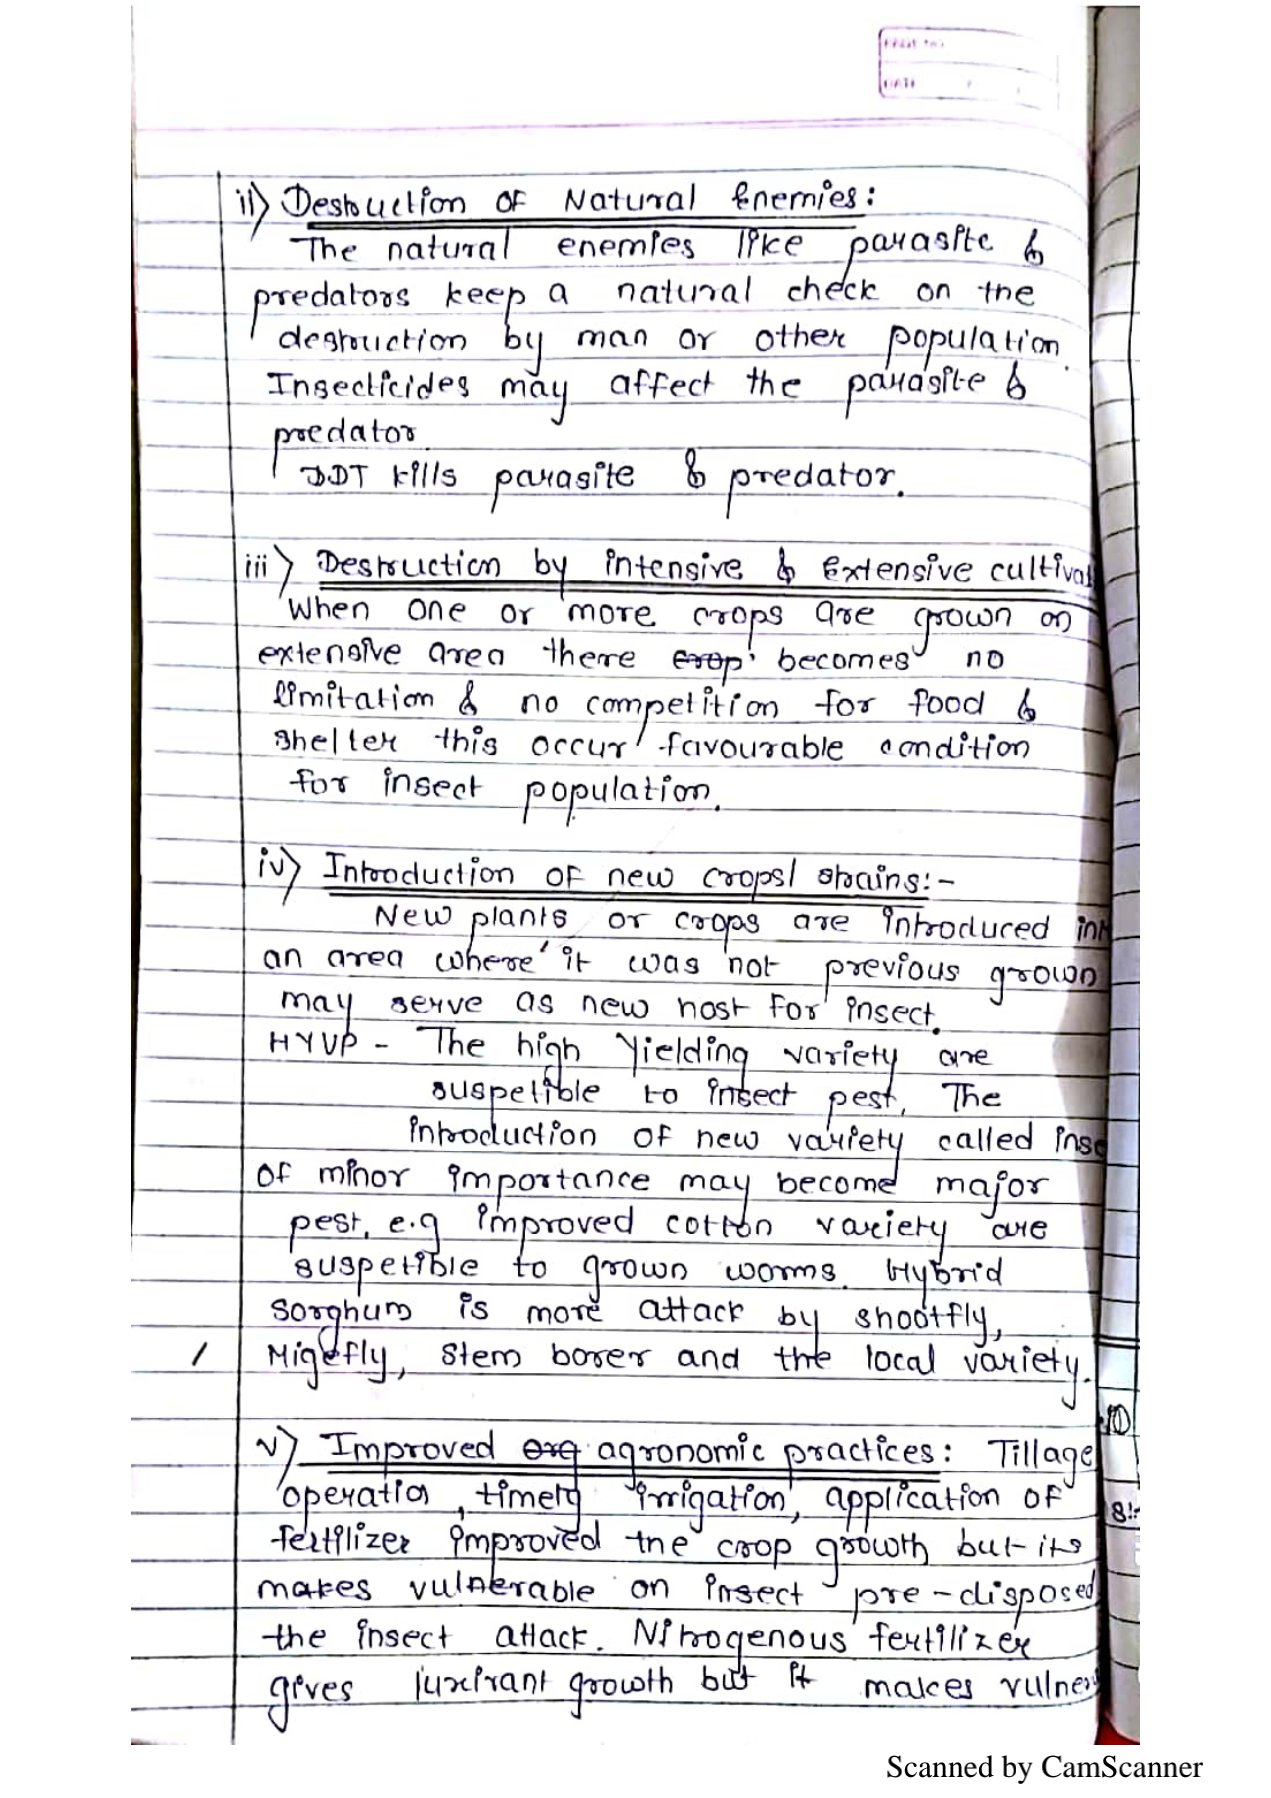 PAGE NO.
DATE
ii) Destruction of Natural Enemies:
The natural enemies like parasite &
predators keep a natural check on the
destruction by man or other population.
Insecticides may affect the parasite &
predator.
DDT kills parasite & predator.
iii) Destruction by intensive & Extensive cultivat
When one or more crops are grown on
extensive area there crop becomes no
limitation & no competition for food &
shelter this occur favourable condition
for insect population.
iv) Introduction of new crops/ strains:-
New plants or crops are introduced int
an area where it was not previous grown
may serve as new host for insect.
HYVP - The high Yielding variety are
suspetible to insect pest. The
introduction of new variety called inse
of minor importance may become major
pest. e.g improved cotton variety are
suspetible to grown worms. Hybrid
Sorghum is more attack by shootfly,
Migefly, stem borer and the local variety.
v) Improved org agronomic practices: Tillage
operation, timely irrigation, application of
fertilizer improved the crop growth but its
makes vulnerable on insect pre-disposed
the insect attack. Nitrogenous fertilizer
gives luxirant growth but it makes vulner
Scanned by CamScanner